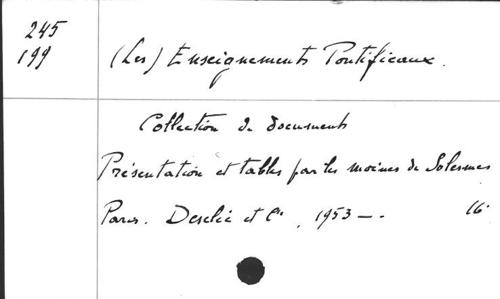 245
199
(Les) Enseignements Pontificaux.
Collection de documents
Présentation et tables par les moines de Solesmes
Paris. Desclée et Cie, 1953 - . 16°